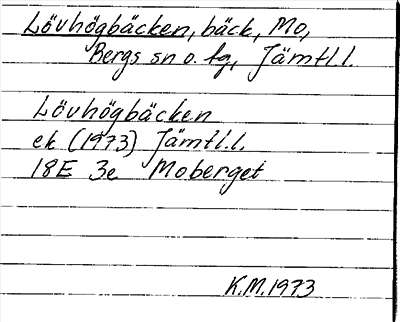 Lövhögbäcken, bäck, Mo,
Bergs sn o. tg, Jämtl.l.
Lövhögbäcken
ek (1973) Jämtl.l.
18E 3e Moberget
K.M.1973